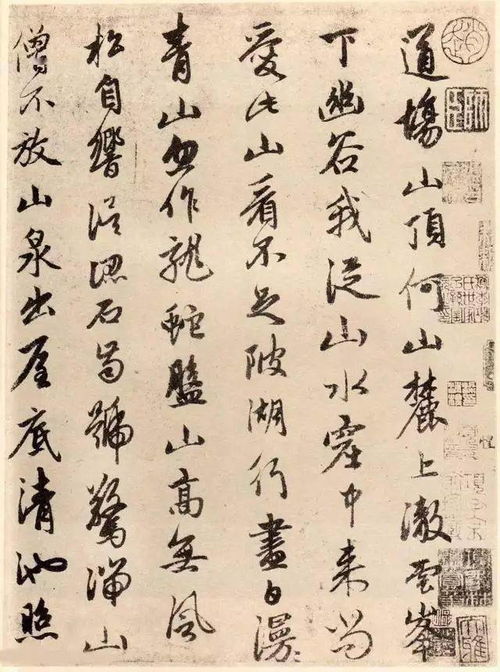 道場山頂何山麓上澈雲峯
下幽谷我從山水窟中来尚
愛此山看不足陂湖行盡白漫〻
青山忽作龍蛇盤山高無風
松自響誤認石齒號驚湍山
僧不放山泉出屋底清池照